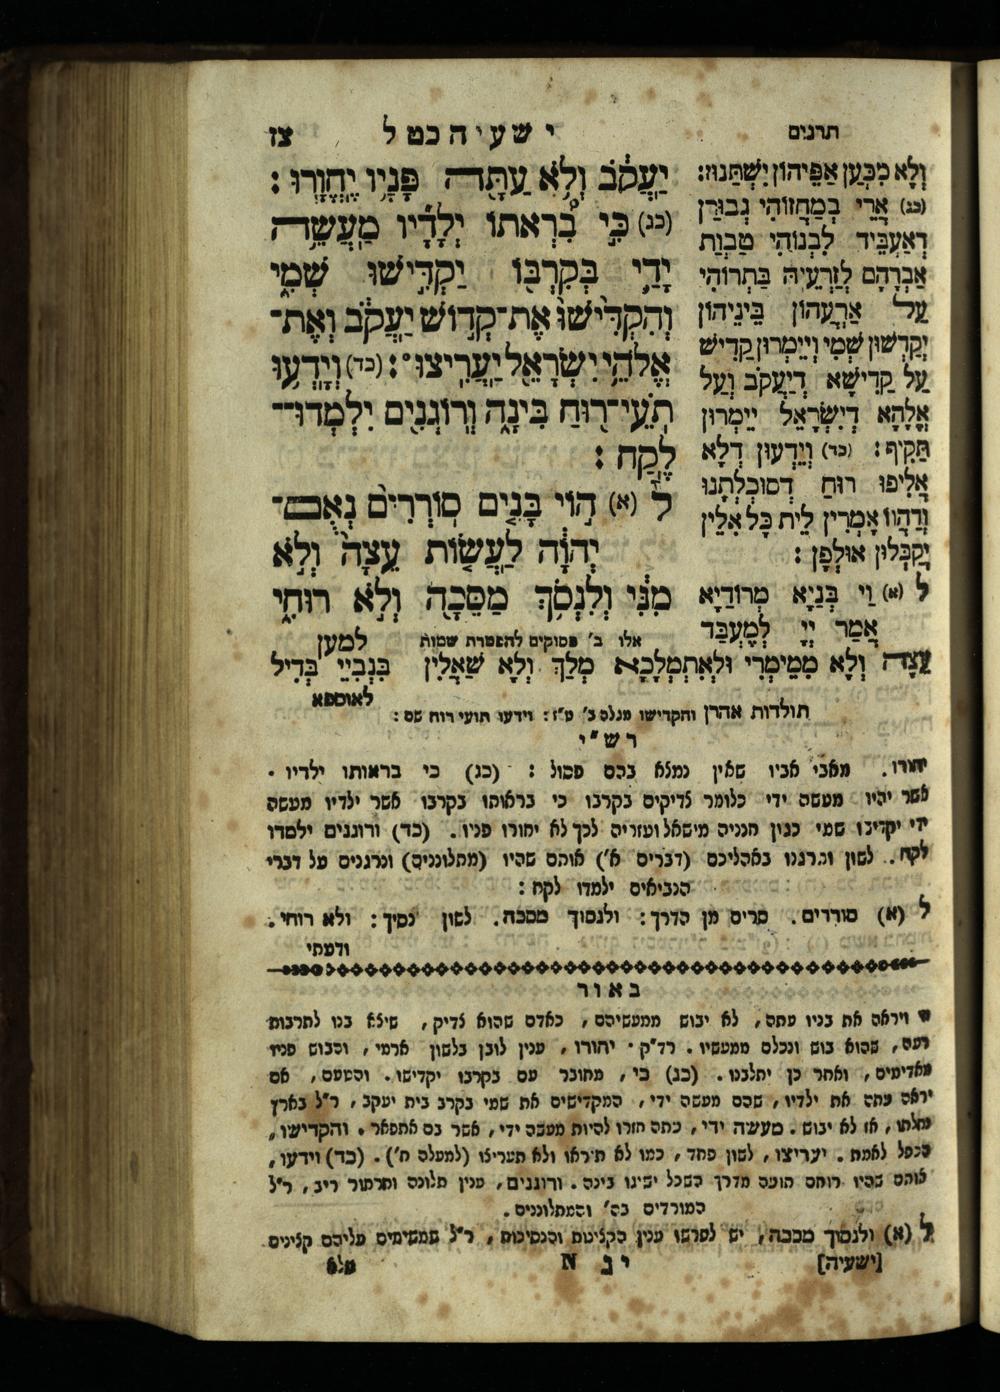 תרגום
ישעיה כט ל
צז
וְלָא מִכְּעַן אַפֵּיהוֹן יִשְׁתַּנוּז:
(כג) אֲרֵי בְמֶחֱזוֹהִי גְבוּרַן
דְאַעְבֵּיד לִבְנוֹהִי טַבְוַת
אַבְרָהָם לְזַרְעֵיהּ בַּתְרוֹהִי
עַל אַרְעֲהוֹן בֵּינֵיהוֹן
יְקַדְשׁוּן שְׁמִי וְיֵימְרוּן קַדִישׁ
עַל קַדִישָׁא דְיַעֲקֹב וְעַל
אֱלָהָא דְיִשְׂרָאֵל יֵימְרוּן
תַּקִיף: (כד) וְיֵדְעוּן דְלָא
אֲלִיפוּ רוּחַ דְסוּכְלְתָנוּ
וְדַהֲווֹ אָמְרִין לֵית כָּל אִלֵין
יְקַבְּלוּן אוּלְפָן:
ל (א) וַי בְּנַיָא מְרוֹדַיָא
אֲמַר יְיָ לְמֶעְבַּד
יַעֲקֹב וְלֹא עַתָּה פָּנָיו יֶחֱוָרוּ:
(כג) כִּי בִרְאֹתוֹ יְלָדָיו מַעֲשֵׂה
יָדַי בְּקִרְבּוֹ יַקְדִּישׁוּ שְׁמִי
וְהִקְדִּישׁוּ אֶת־קְדוֹשׁ יַעֲקֹב וְאֶת־
אֱלֹהֵי יִשְׂרָאֵל יַעֲרִיצוּ: (כד) וְיָדְעוּ
תֹעֵי־רוּחַ בִּינָה וְרוֹגְנִים יִלְמְדוּ־
לֶקַח:
ל (א) הוֹי בָּנִים סוֹרְרִים נְאֻם־
יְהוָֹה לַעֲשׂוֹת עֵצָה וְלֹא
מִנִּי וְלִנְסֹךְ מַסֵּכָה וְלֹא רוּחִי
אלו ב' פסוקים להפטרת שמות
למען
עֵצָה וְלָא מִמֵימְרִי וּלְאִתְמַלְכָא מְלַךְ וְלָא שָׁאֲלִין בִּנְבִיַי בְּדִיל
לאוספא
תולדות אהרן והקדישו מגלס ב' ט"ז: וידעו תועי רוח שם:
רש"י
יחורו. מאבי אביו שאין נמלא בהם פסול: (כג) כי בראותו ילדיו.
אשר יהיו מעשה ידי כלומר לדיקים בקרבו כי בראותו בקרבו אשר ילדיו מעשה
ידי יקדישו שמי כגון חנניה מישאל ועזריה לכך לא יחורו פניו. (כד) ורוגנים ילמדו
לקח. לשון ותרגנו באהליכם (דברים א') אותם שהיו (מתלוננים) ונרגנים על דברי
הנביאים ילמדו לקח:
ל (א) סוררים. סרים מן הדרך: ולנסוך מסכה. לשון נסיך: ולא רוחי.
ודעתי
באור
ויראה את בניו עתה, לא יבוש ממעשיהם, כאדם שהוא צדיק, שיצא בנו לתרבות
רעה, שהוא בוש ונכלם ממעשיו. רד"ק. יחורו, ענין לובן בלשון ארמי, והבוש פניו
מאדימים, ואחר כן יתלבנו. (כג) כי, מחובר עם בקרבו יקדישו. והטעם, אם
יראה עתה את ילדיו, שהם מעשה ידי, המקדישים את שמי בקרב בית יעקב, ר"ל בארץ
נחלתו, אז לא יבוש. מעשה ידי, כתה חזרו להיות מעשה ידי, אשר בם אתפאר. והקדישו,
הכפל לאמת. יעריצו, לשון פחד, כמו לא תיראו ולא תעריצו (למעלה ח'). (כד) וידעו,
אותם שהיו רוחם תועה מדרך השכל ישיגו בינה. ורוגנים, ענין תלונה ותרתור ריב, ר"ל
המורדים בה' והמתלוננים.
ל (א) ולנסוך מסכה, יש לפרשו ענין הקצינות והנסיכות, ר"ל שמשימים עליהם קצינים
[ישעיה]
יג N
שלא